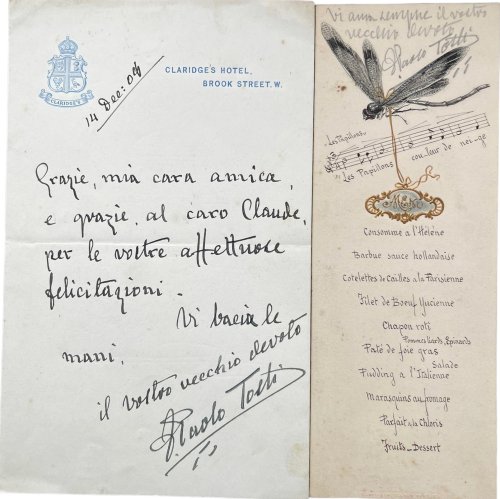 CLARIDGE'S
CLARIDGE'S HOTEL,
BROOK STREET. W.
14 Dec: 04
Grazie, mia cara amica,
e grazie al caro Claude,
per le vostre affettuose
felicitazioni.
Vi bacia le
mani,
il vostro vecchio devoto
F. Paolo Tosti
Vi ama sempre il vostro
vecchio devoto
F. Paolo Tosti
Les Papillons
Les Papillons cou-leur de nei-ge
Menu
Consommé à l'Hélène
Barbue sauce hollandaise
Cotelettes de Cailles à la Parisienne
Filet de Boeuf
Chapon roti
Pommes Liards, Epinards
Paté de foie gras
Salade
Pudding à l'Italienne
Marasquins au fromage
Parfait à la Chloris
Fruits - Dessert